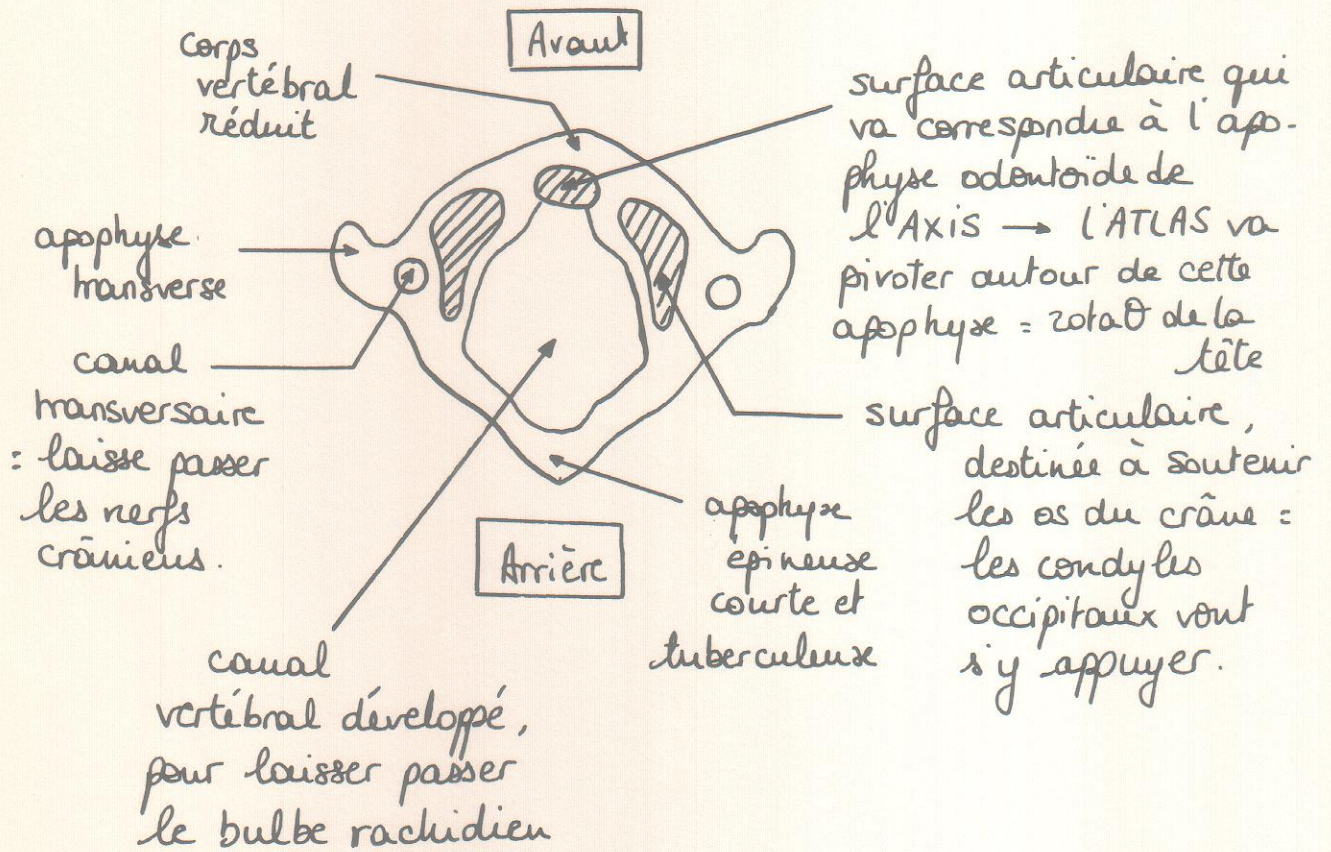 Avant
corps
vertébral
réduit
surface articulaire qui
va correspondre à l'apo-
physe odontoïde de
l'AXIS → l'ATLAS va
pivoter autour de cette
apophyse = rotaθ de la
tête
apophyse
transverse
canal
transversaire
= laisse passer
les nerfs
crâniens.
surface articulaire,
destinée à soutenir
les os du crâne =
les condyles
occipitaux vont
s'y appuyer.
apophyse
épineuse
courte et
tuberculeuse
Arrière
canal
vertébral développé,
pour laisser passer
le bulbe rachidien